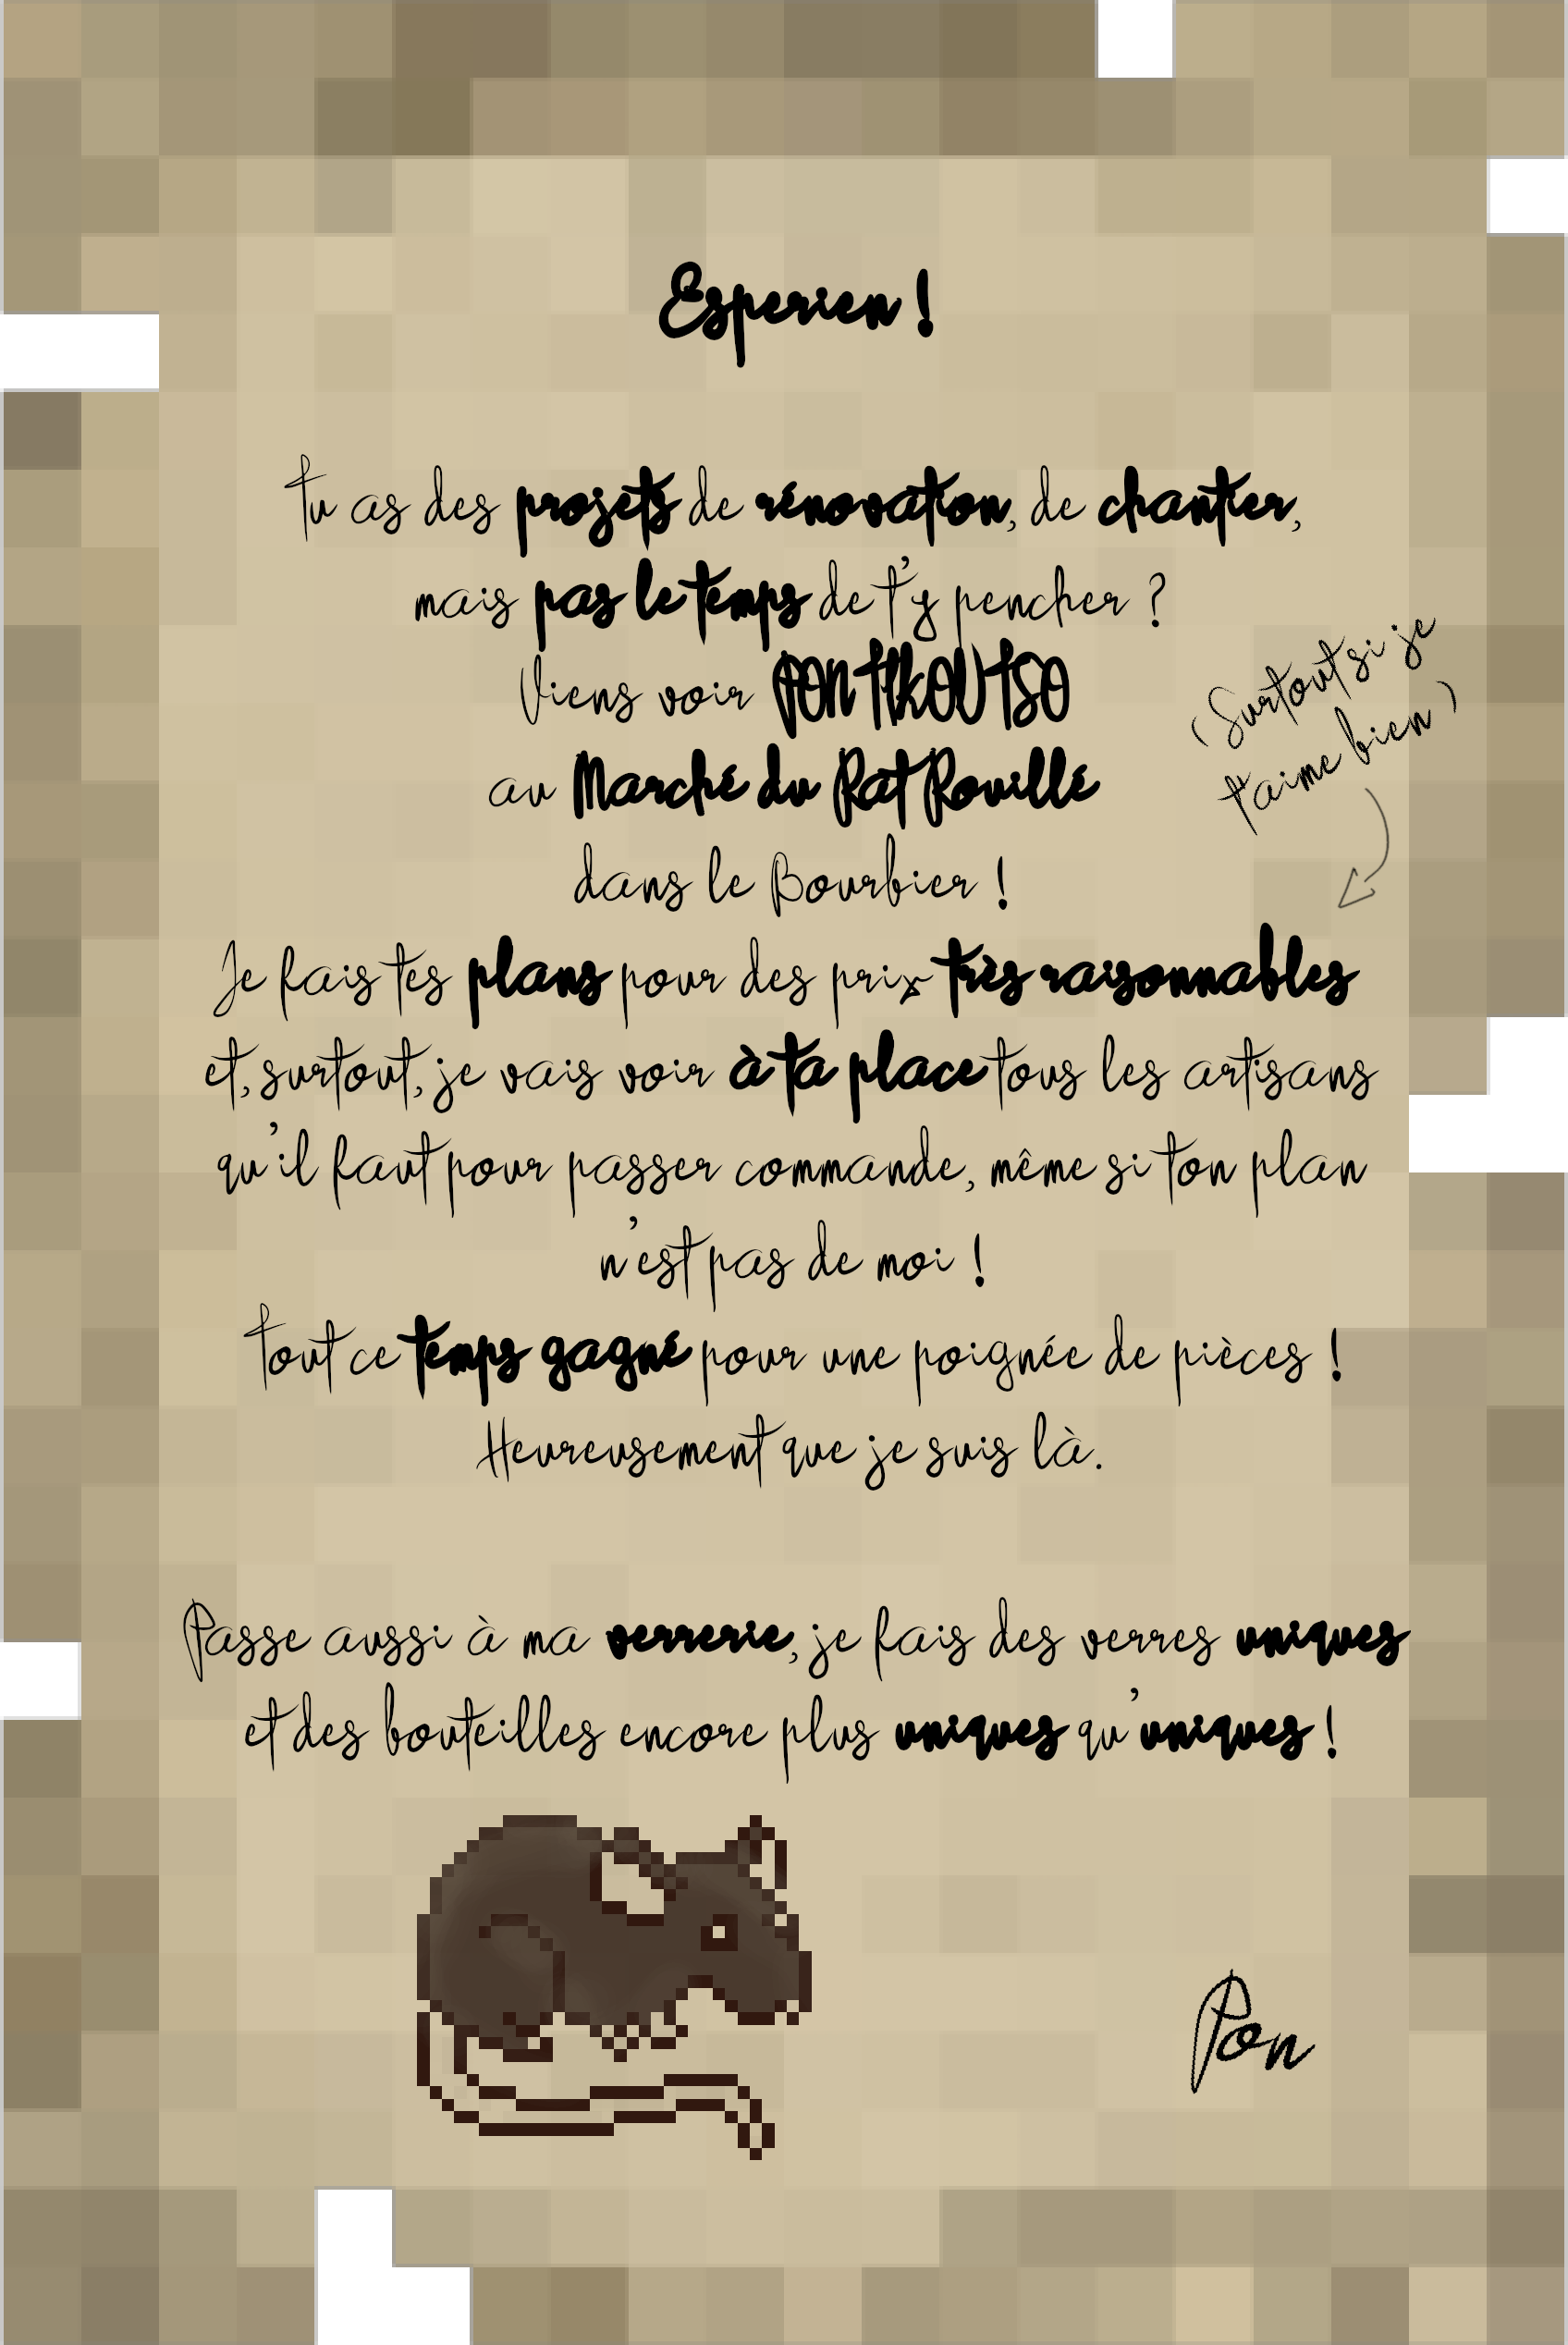 Esperien !
Tu as des projets de rénovation, de chantier,
mais pas le temps de t'y pencher ?
Viens voir PONTIKOUTSO
au Marché du Rat Rouillé
dans le Bourbier !
(Surtout si je
t'aime bien)
Je fais tes plans pour des prix très raisonnables
et, surtout, je vais voir à ta place tous les artisans
qu'il faut pour passer commande, même si ton plan
n'est pas de moi !
Tout ce temps gagné pour une poignée de pièces !
Heureusement que je suis là.
Passe aussi à ma verrerie, je fais des verres uniques
et des bouteilles encore plus uniques qu'uniques !
Pon